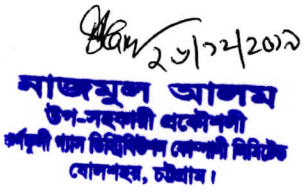 ২৬/১২/২০১৯
নাজমুল আলম
উপ-সহকারী প্রকৌশলী
কর্ণফুলী গ্যাস ডিস্ট্রিবিউশন কোম্পানী লিমিটেড
ষোলশহর, চট্টগ্রাম।